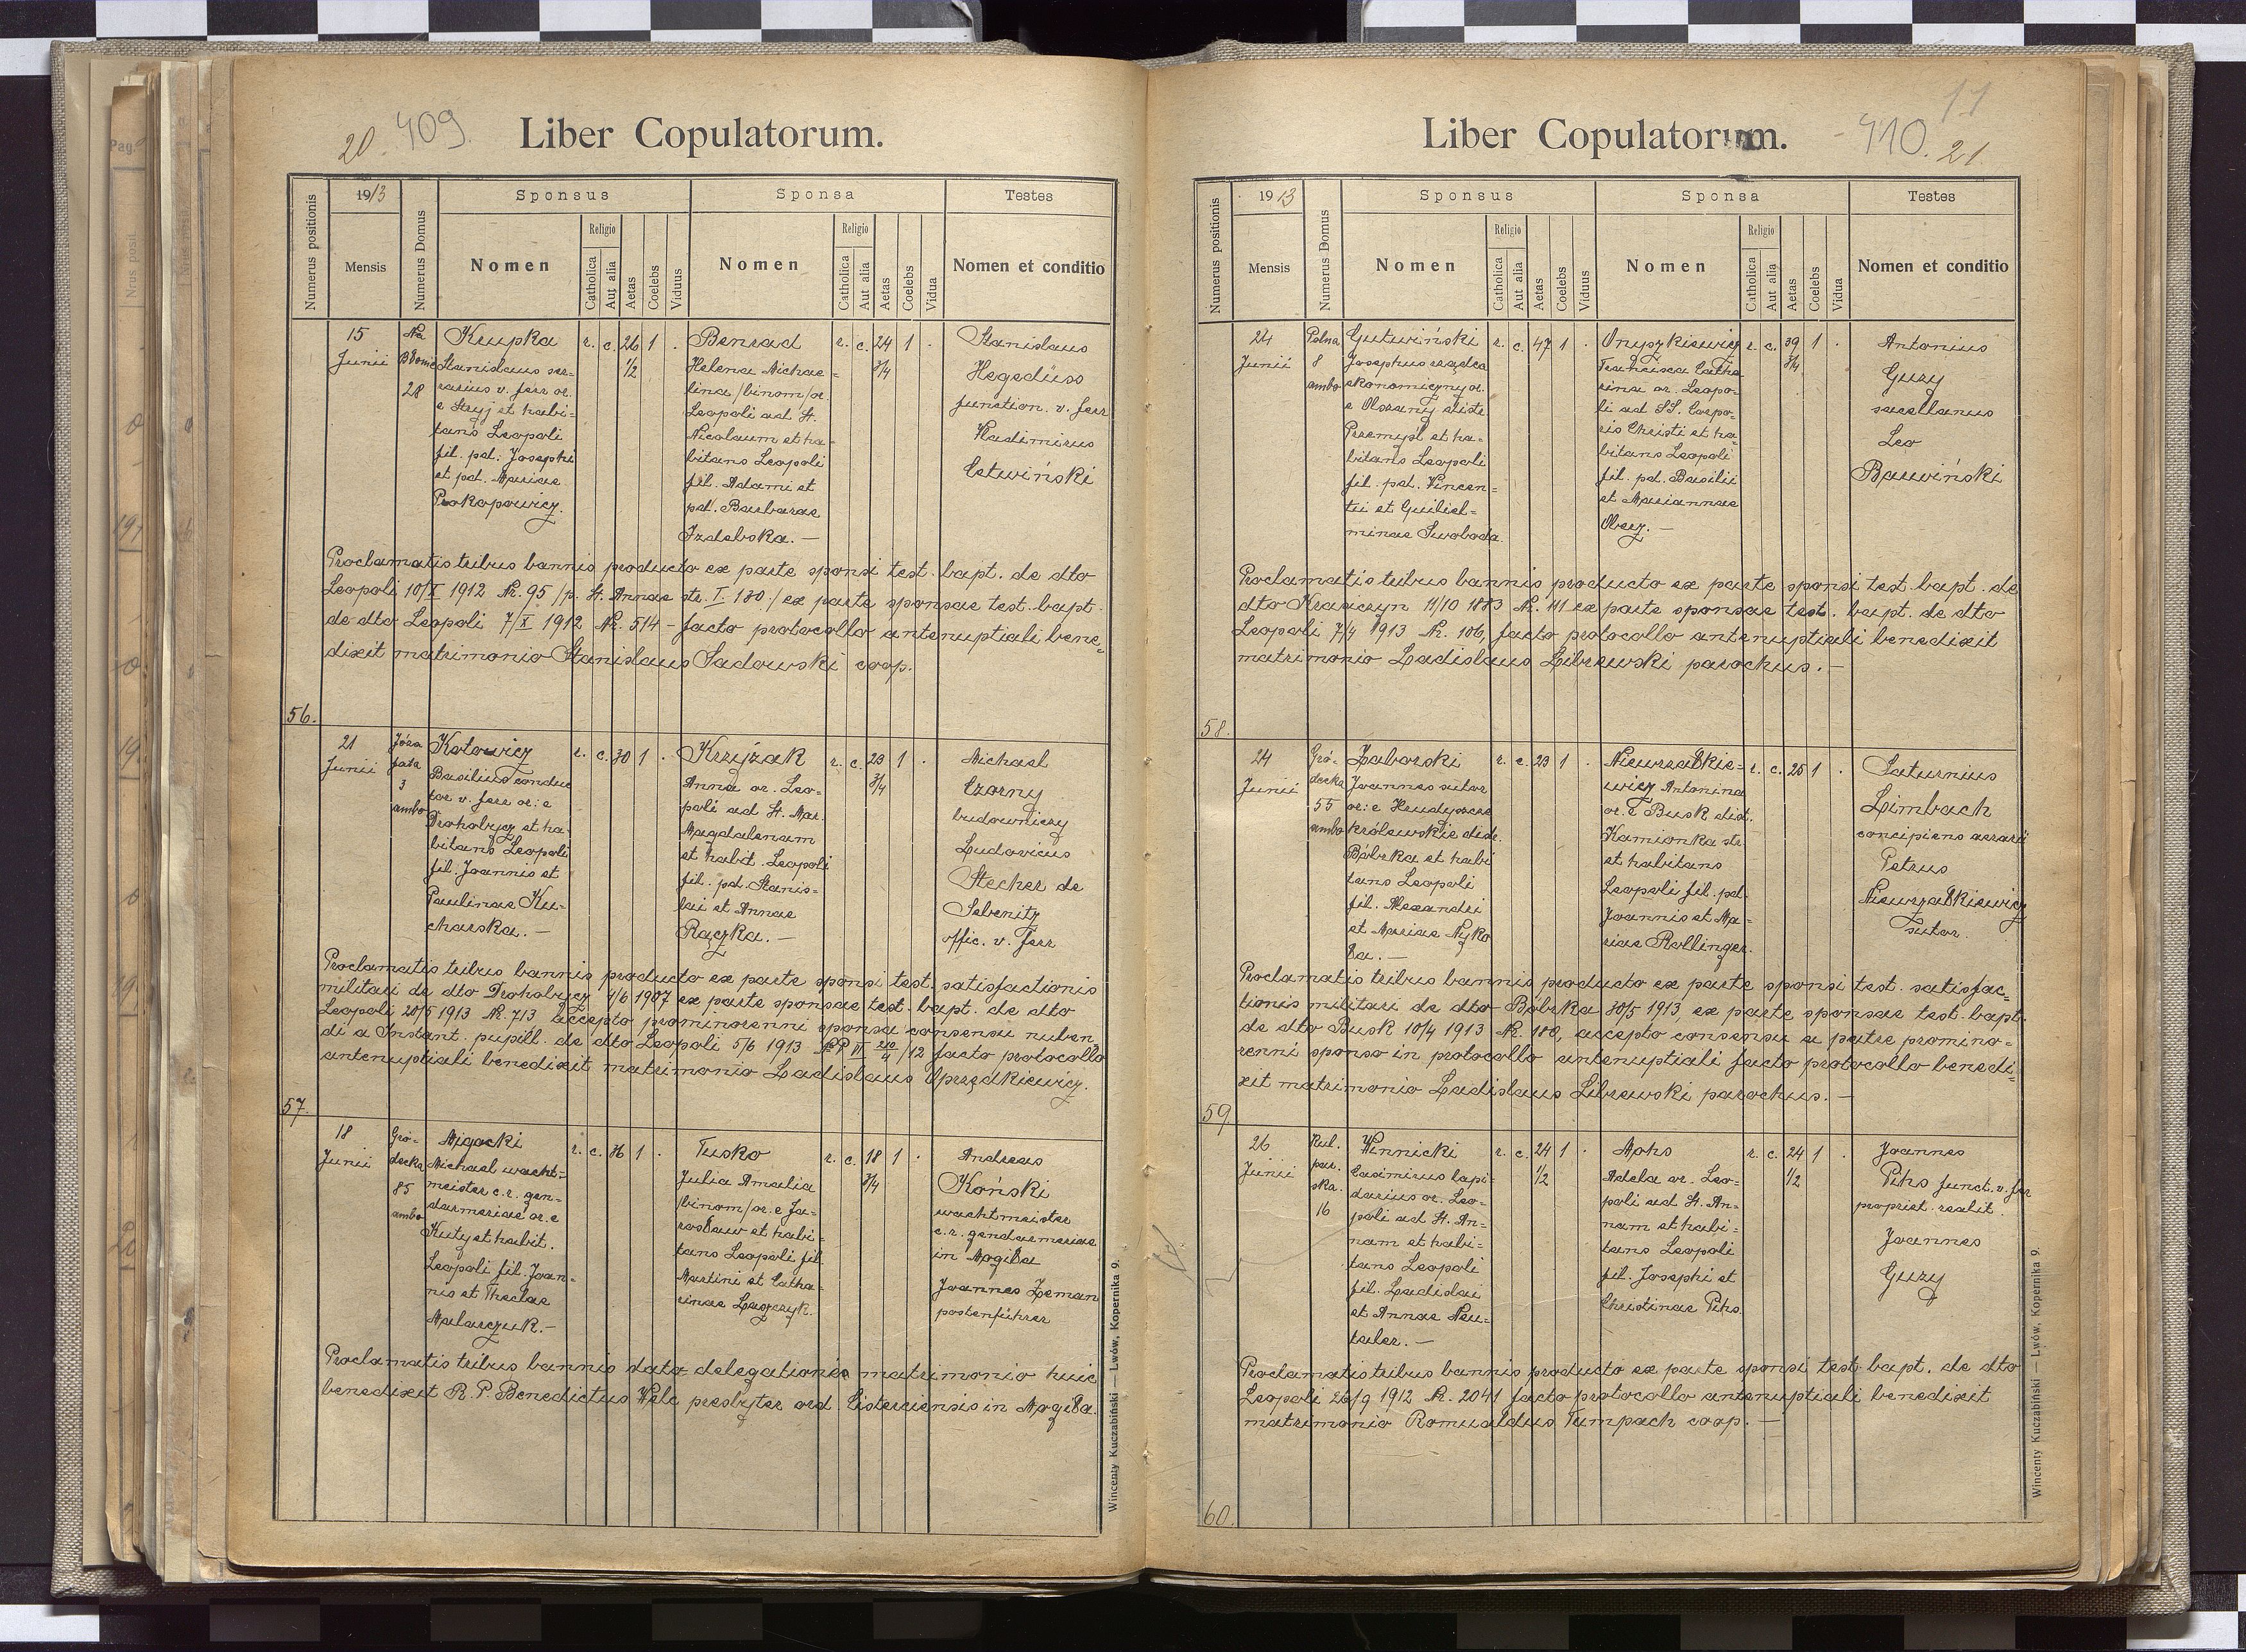 20. 409.
Liber Copulatorum.
Numerus positionis
1913
Mensis
Numerus Domus
Sponsus
Nomen
Religio
Catholica
Aut alia
Aetas
Coelebs
Viduus
Sponsa
Nomen
Religio
Catholica
Aut alia
Aetas
Coelebs
Vidua
Testes
Nomen et conditio
56.
15
Junii
Na
Błonie
28
Krupka
Stanislaus ser-
rarius v. ferr or.
e Stryj et habi-
tans Leopoli
fil. pd. Josephi
et pd. Mariae
Prokopowicz.
r. c. 26 1 .
1/2
Benrad
Helena Michae-
lina /binom/ or.
Leopoli ad St.
Nicolaum et ha-
bitans Leopoli
fil. Adami et
pd. Barbarae
Izdebska. —
r. c. 24 1 .
3/4
Stanislaus
Hegedüss
function. v. ferr
Vladimirus
Cetwiński
Proclamatis tribus bannis producto ex parte sponsi test. bapt. de dto
Leopoli 10/X 1912 Nr. 95 /p. St. Annae str. I. 130./ ex parte sponsae test. bapt.
de dto Leopoli 7/X 1912 Nr. 514 - facto protocollo antenuptiali bene-
dixit matrimonio Stanislaus Sadowski coop.
57.
21
Junii
Józa
fata
3
ambo
Kotowicz
Basilius conduc
tor v. ferr or: e
Drohobycz et ha-
bitans Leopoli
fil. Joannis et
Paulinae Ku-
charska. —
r. c. 30 1 .
Krzyżak
Anna or. Leo-
poli ad St. Mar.
Magdalenam
et habit. Leopoli
fil. pd. Stanis-
lai et Annae
Rączka. —
r. c. 23 1 .
3/4
Michael
Czorny
budowniczy
Ludovicus
Stecher de
Sebenitz
offic. v. ferr
Proclamatis tribus bannis producto ex parte sponsi test. satisfactionis
militari de dto Drohobycz 1/6 1907 ex parte sponsae test. bapt. de dto
Leopoli 20/5 1913 Nr. 713 accepto prominorenni sponsa consensu nuben-
di a Instant. pupill. de dto Leopoli 5/6 1913 facto protocollo
antenuptiali benedixit matrimonio Ladislaus Oprzędkiewicz.
18
Junii
Gró-
decka
85
ambo
Migocki
Michael wacht-
meister c. r. gen-
darmeriae or. e
Kuty et habit.
Leopoli fil. Joan-
nis et Theclae
Malarczuk. —
r. c. 36 1 .
Tusko
Julia Amalia
/binom/ or. e Ja-
rosław et habi-
tans Leopoli fil.
Martini et Catha-
rinae Łaszczyk.
r. c. 18 1 .
3/4
Andreas
Koński
wachtmeister
c. r. gendarmeriae
in Mogiła
Joannes Zeman
postenführer
Proclamatis tribus bannis data delegationis matrimonio huic
benedixit R. P. Benedictus Welc presbyter ord. Cisterciensis in Mogiła.
Wincenty Kuczabiński — Lwów, Kopernika 9.
11
410. 21.
Liber Copulatorum.
Numerus positionis
1913
Mensis
Numerus Domus
Sponsus
Nomen
Religio
Catholica
Aut alia
Aetas
Coelebs
Viduus
Sponsa
Nomen
Religio
Catholica
Aut alia
Aetas
Coelebs
Vidua
Testes
Nomen et conditio
58.
24
Junii
Polna
8
ambo
Gutwiński
Josephus rządca
ekonomiczny or.
e Olszany distr.
Przemyśl et ha-
bitans Leopoli
fil. pd. Vincen-
tii et Guiliel-
minae Swoboda.
r. c. 47 1 .
Onyszkiewicz
Francisca Catha
rina or. Leopo-
li ad SS. Corpo-
ris Christi et ha-
bitans Leopoli
fil. pd. Basilii
et Mariannae
Obacz. —
r. c. 39 1 .
3/4
Antonius
Guzy
sacellanus
Leo
Barwiński
Proclamatis tribus bannis producto ex parte sponsi test. bapt. de
dto Krasiczyn 11/10 1883 Nr. 111 ex parte sponsae test. bapt. de dto
Leopoli 7/4 1913 Nr. 106, facto protocollo antenuptiali benedixit
matrimonio Ladislaus Librewski parochus. —
59.
24
Junii
Gró-
decka
55
ambo
Zaborski
Joannes sutor
or: e Hrudyszcze
królewskie distr.
Bóbrka et habi
tans Leopoli
fil. Alexandri
et Mariae Myko
ła. —
r. c. 23 1 .
Niewrzałkie-
wicz Antonina
or. e Busk dist.
Kamionka str.
et habitans
Leopoli fil. pd.
Joannis et Ma-
riae Rollinger.
r. c. 25 1 .
Saturnius
Limbach
concipiens aerarii
Petrus
Niewrzałkiewicz
sutor.
Proclamatis tribus bannis producto ex parte sponsi test. satisfac-
tionis militari de dto Bóbrka 30/5 1913, ex parte sponsae test. bapt.
de dto Busk 10/4 1913 Nr. 180, accepto consensu a patre promino-
renni sponso in protocollo antenuptiali facto protocollo benedi-
xit matrimonio Ladislaus Librewski parochus. —
60.
26
Junii
Kul.
par.
ska.
16
Winnicki
Casimirus lapi-
darius or. Leo-
poli ad St. An-
nam et habi-
tans Leopoli
fil. Ladislai
et Annae Neu-
taler. —
r. c. 24 1 .
1/2
Mohs
Adela or. Leo-
poli ad St. An-
nam et habi-
tans Leopoli
fil. Josephi et
Christinae Pihs.
r. c. 24 1 .
1/2
Joannes
Pihs funct. v. ferr
propriet. realit.
Joannes
Guzy
Proclamatis tribus bannis producto ex parte sponsi test. bapt. de dto
Leopoli 26/9 1912 Nr. 2041 facto protocollo antenuptiali benedixit
matrimonio Romualdus Tumpach coop. —
Wincenty Kuczabiński — Lwów, Kopernika 9.